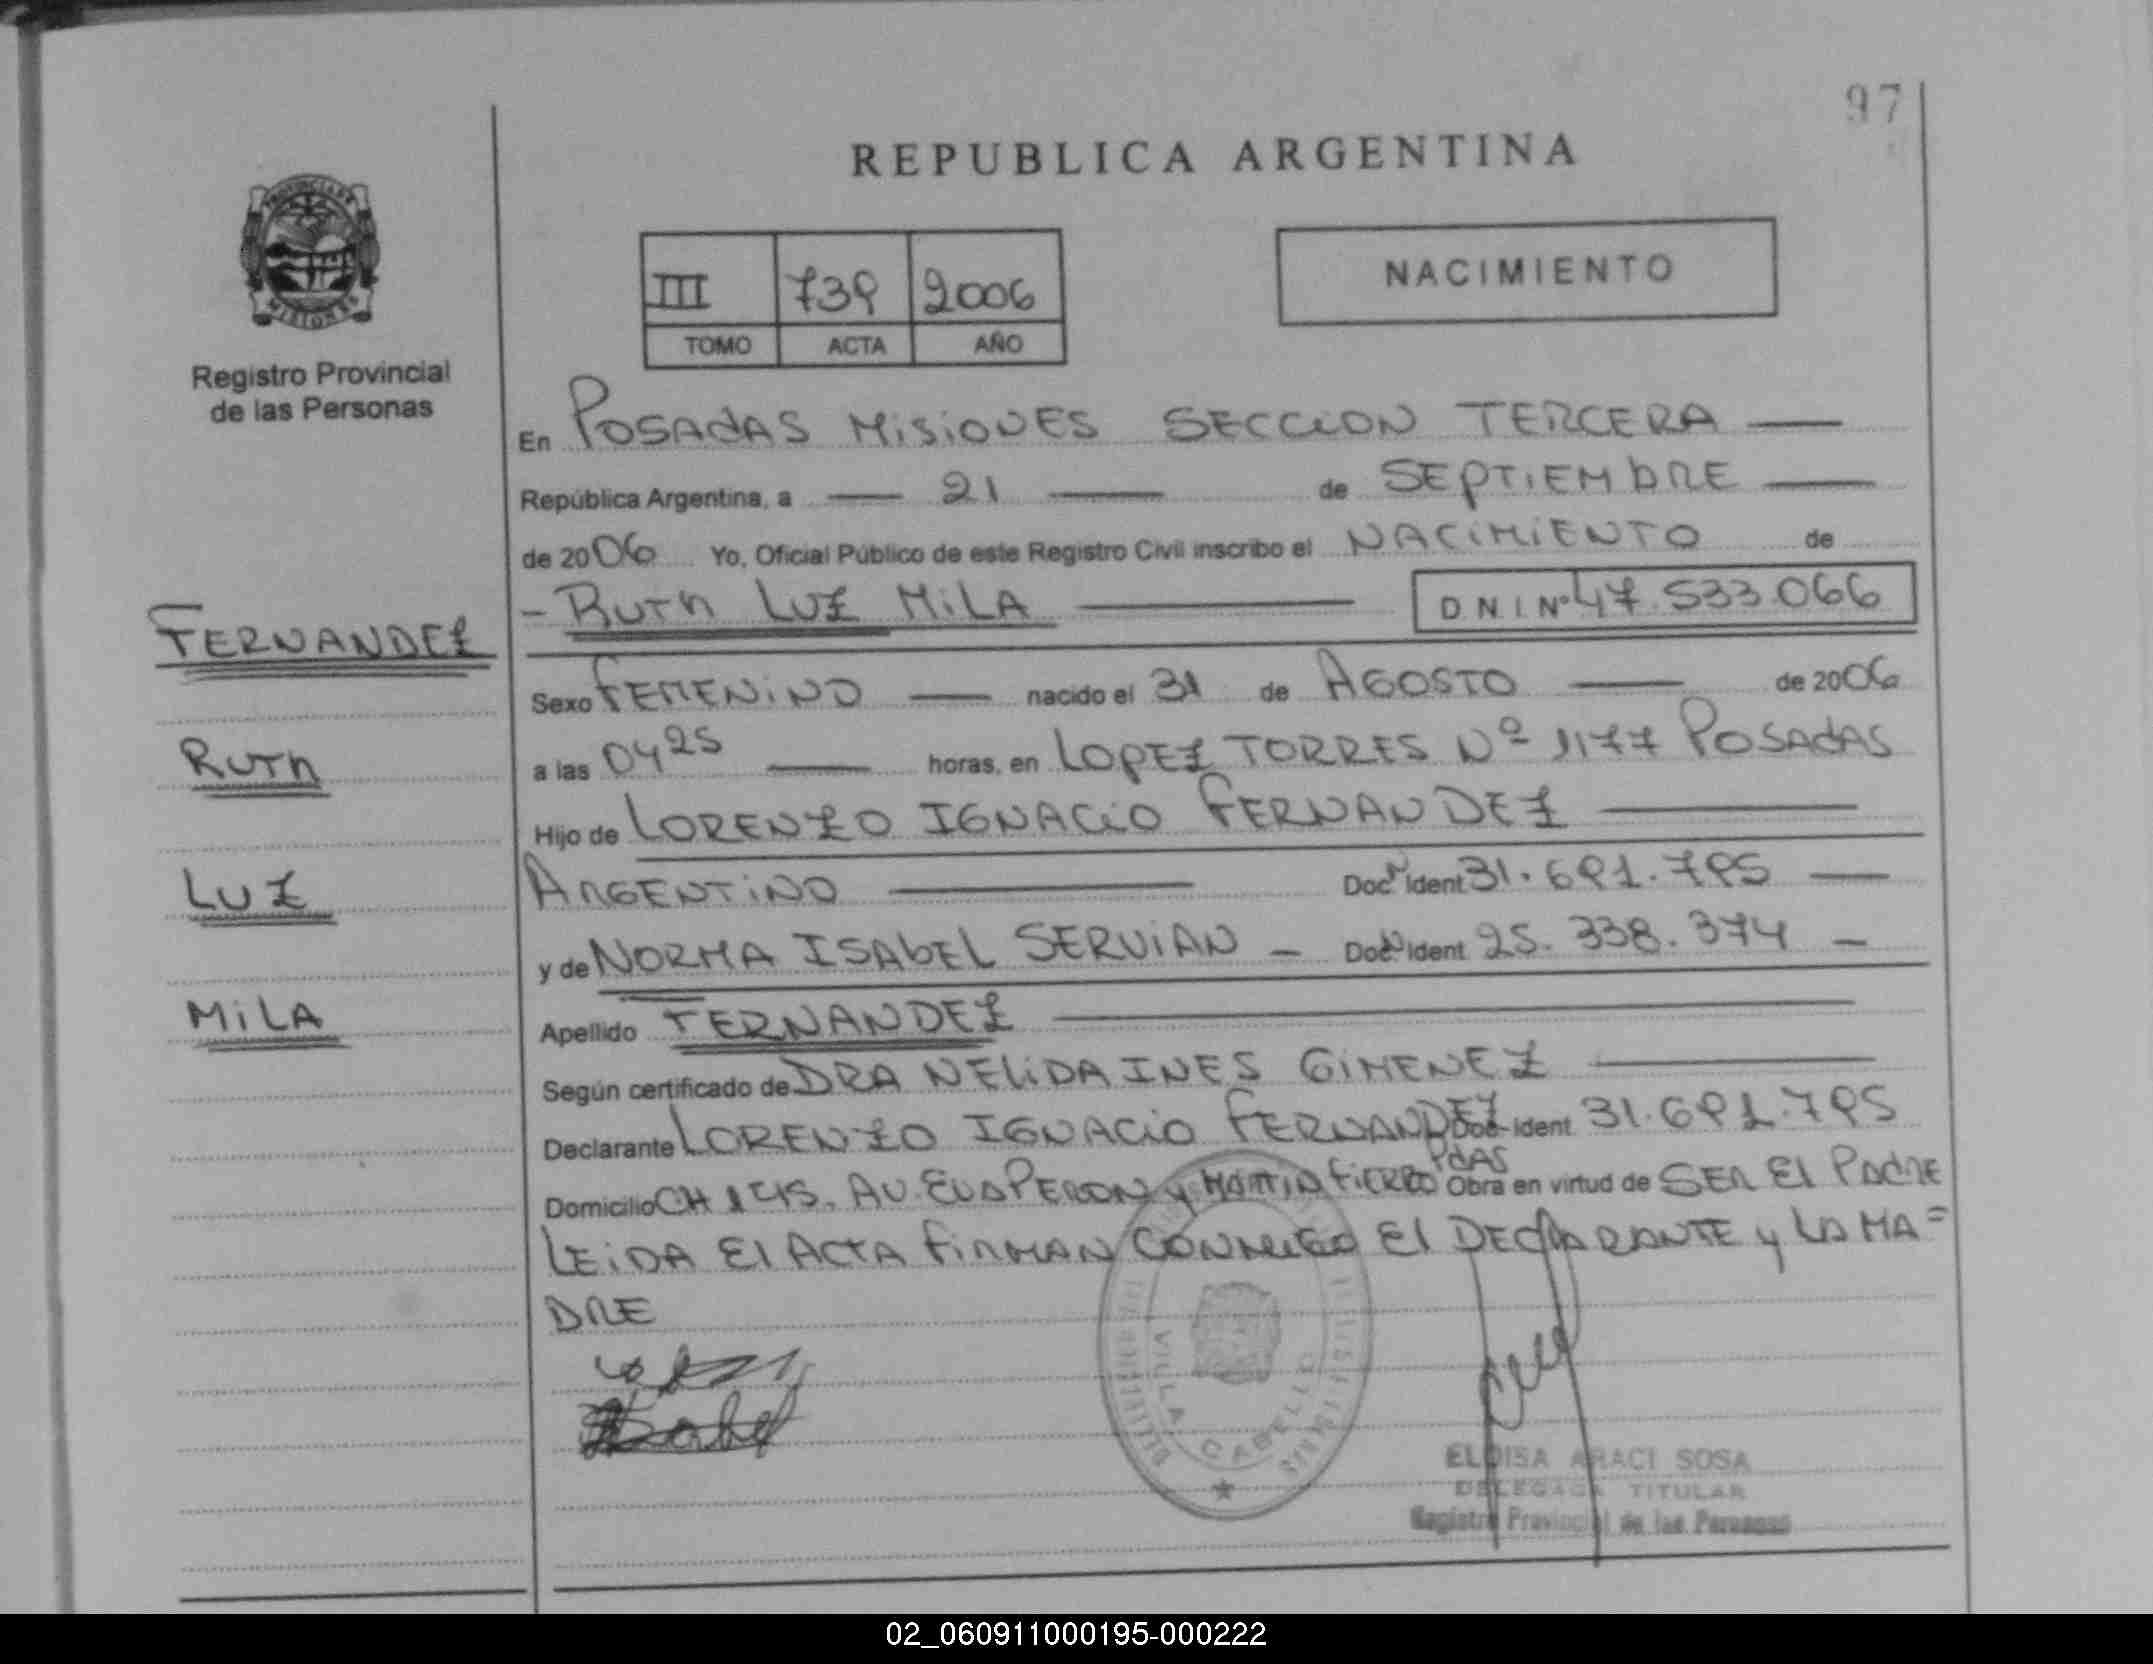 97
REPUBLICA ARGENTINA
PROVINCIA DE
MISIONES
Registro Provincial
de las Personas
III 739 2006
TOMO ACTA AÑO
NACIMIENTO
En POSADAS MISIONES SECCION TERCERA
República Argentina, a 21 de SEPTIEMBRE
de 2006 Yo, Oficial Público de este Registro Civil inscribo el NACIMIENTO de
RUTH LUZ MILA D N I Nº 47.533.066
FERNANDEZ
Sexo FEMENINO nacido el 31 de AGOSTO de 2006
RUTH
a las 04 25 horas, en LOPEZ TORRES Nº 1177 POSADAS
Hijo de LORENZO IGNACIO FERNANDEZ
LUZ
ARGENTINO Doc. Ident 31.691.795
y de NORMA ISABEL SERVIAN Doc. Ident. 25.338.374
MILA
Apellido FERNANDEZ
Según certificado de DRA NELIDA INES GIMENEZ
Declarante LORENZO IGNACIO FERNANDEZ Doc. Ident. 31.691.795
Domicilio CH 145. AV. EVA PERON y MARTIN FIERRO PDAS Obra en virtud de SER El PADRE
LEIDA El ACTA FIRMAN CONMIGO El DECLARANTE y LA MA=
DRE
Isabel
VILLA CABELLO
ELOISA ARACI SOSA
DELEGADA TITULAR
Registro Provincial de las Personas
02_060911000195-000222